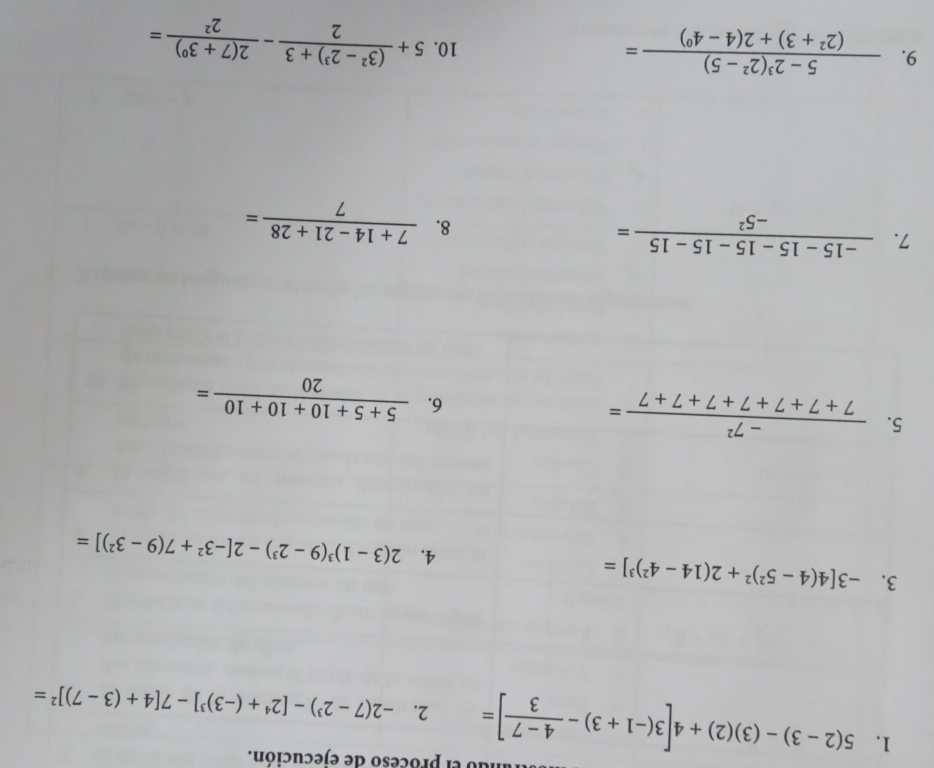 el proceso de ejecución.
1. 5(2 − 3) − (3)(2) + 4[3(−1 + 3) − \frac{4 − 7}{3}] =
2. −2(7 − 2³) − [2⁴ + (−3)³] − 7[4 + (3 − 7)]² =
3. −3[4(4 − 5²)² + 2(14 − 4²)³] =
4. 2(3 − 1)³(9 − 2³) − 2[−3² + 7(9 − 3²)] =
5. \frac{− 7²}{7 + 7 + 7 + 7 + 7 + 7 + 7} =
6. \frac{5 + 5 + 10 + 10 + 10}{20} =
7. \frac{−15 − 15 − 15 − 15 − 15}{−5²} =
8. \frac{7 + 14 − 21 + 28}{7} =
9. \frac{5 − 2³(2² − 5)}{(2² + 3) + 2(4 − 4⁰)} =
10. 5 + \frac{(3² − 2³) + 3}{2} − \frac{2(7 + 3⁰)}{2²} =